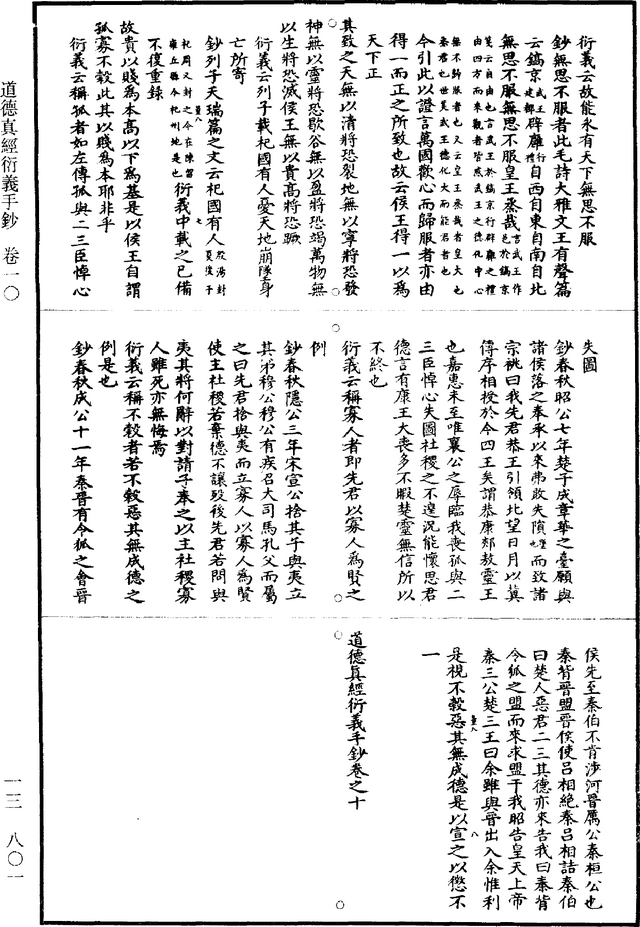 衍義云故能永有天下無思不服
鈔無思不服者此毛詩大雅文王有聲篇
云鎬京武王建都辟廱行禮自西自東自南自北
無思不服無思不服皇王烝哉言武王作邑於鎬京
箋云自由也言武王於鎬京行辟廱之禮
由四方而來觀者皆感武王之德化中心
無不歸服者也又云皇王烝哉者皇大也
烝君也世美武王德化大而能君者也
今引此以證言萬國歡心而歸服者亦由
得一而正之所致也故云侯王得一以為
天下正
其致之天無以清將恐裂地無以寧將恐發
神無以靈將恐歇谷無以盈將恐竭萬物無
以生將恐滅侯王無以貴高將恐蹶
衍義云列子載杞國有人憂天地崩墜身
亡所寄
鈔列子天瑞篇之文云杞國有人殷湯封夏後于
杞周又封之今在陳留雍丘縣今杞州地是也衍義中載之已備
不復重錄
故貴以賤為本高以下為基是以侯王自謂
孤寡不穀此其以賤為本耶非乎
衍義云稱孤者如左傳孤與二三臣悼心
失圖
鈔春秋昭公七年楚子成章華之臺願與
諸侯落之奉承以來弗敢失隕也而致諸
宗祧曰我先君恭王引領北望日月以冀
傳序相授於今四王矣謂恭康郟敖靈王
也嘉惠未至唯襄公之辱臨我喪孤與二
三臣悼心失圖社稷之不遑況能懷思君
德言有康王大喪多不暇楚靈無信所以
不終也
衍義云稱寡人者即先君以寡人為賢之
例
鈔春秋隱公三年宋宣公捨其子與夷立
其弟穆公穆公有疾召大司馬孔父而屬
之曰先君捨與夷而立寡人以寡人為賢
使主社稷若棄德不讓歿後先君若問與
夷其將何辭以對請子奉之以主社稷寡
人雖死亦無悔焉
衍義云稱不穀者若不穀惡其無成德之
例是也
鈔春秋成公十一年秦晉有令狐之會晉
侯先至秦伯不肯涉河晉厲公秦桓公也
秦背晉盟晉侯使呂相絕秦呂相詰秦伯
曰楚人惡君二三其德亦來告我曰秦背
令狐之盟而來求盟于我昭告皇天上帝
秦三公楚三王曰余雖與晉出入余惟利
是視不穀惡其無成德是以宣之以懲不
一
道德真經衍義手鈔卷之十
道德真經衍義手鈔 卷一〇
一三 八〇一